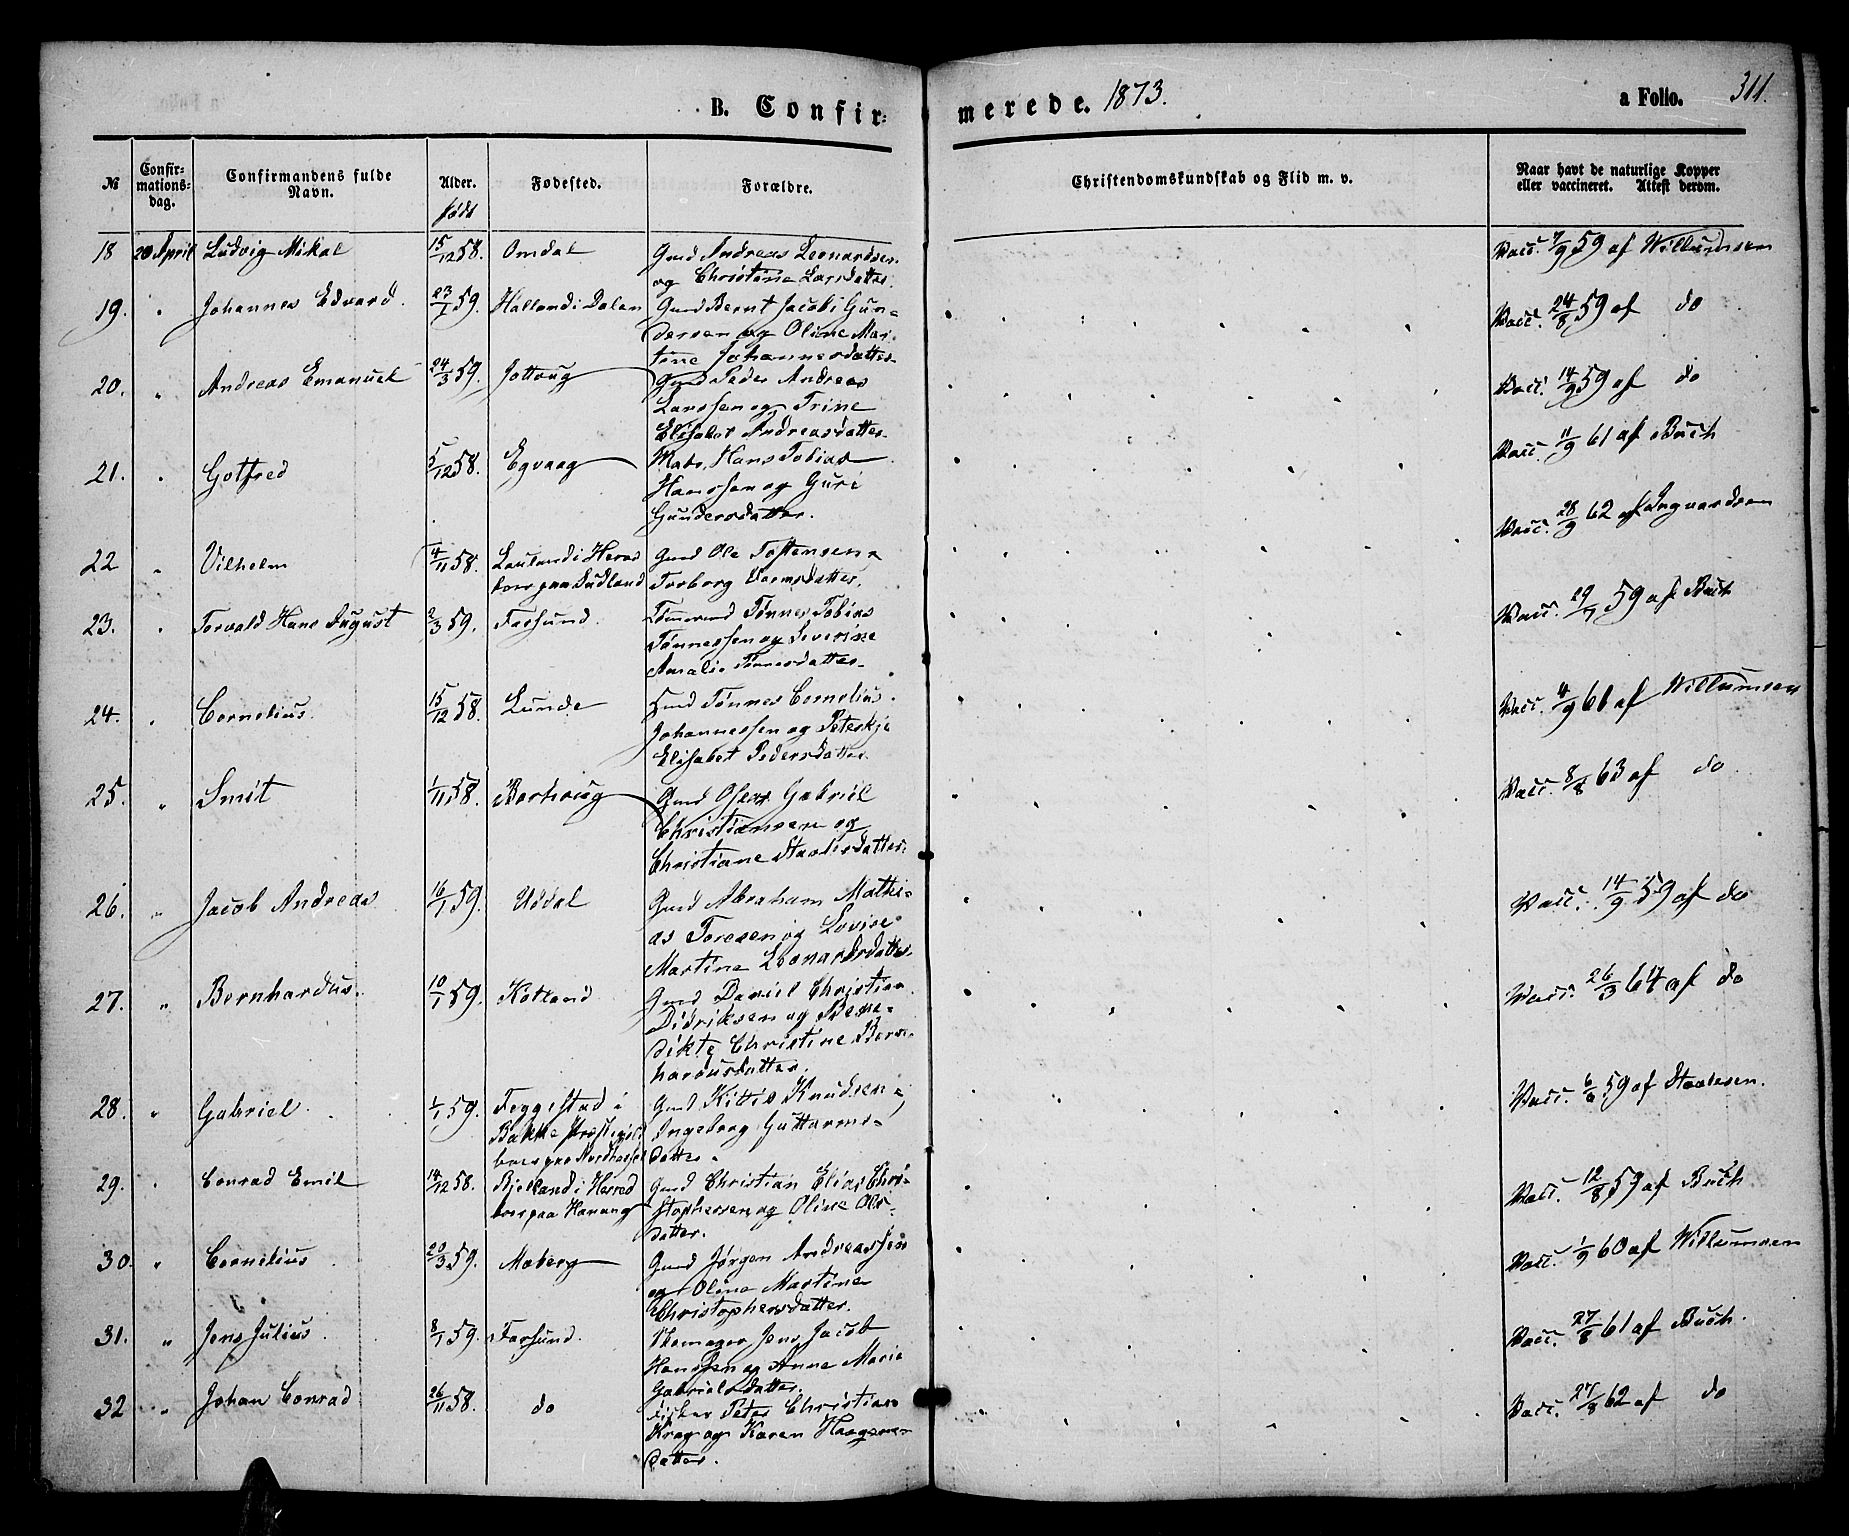 B. Confir-merede. 1873.
a Folio. 311.
№
Confir-
mations-
dag.
Confirmandens fulde
Navn.
Alder.
født
Fødested.
Forældre.
Christendomskundskab og Flid m. v.
Naar havt de naturlige Kopper
eller vaccineret. Attest derom.
18 20 April Ludvig Mikal 15/12 58. Omdal Gmd Andreas Leonardsen
og Christine Larsdatter. Vacc. 7/9 59 af Willumsen
19. " Johannes Edvard. 23/1 59. Halland i Dalen Gmd Bernt Jacob Gun-
dersen og Oline Mar-
tine Johannesdatter Vacc. 24/8 59 af do
20. " Andreas Emanuel 24/3 59. Jottoug Gmd Peder Andreas
Larssen og Trine
Elisabet Andreasdatter Vacc. 14/9 59 af do
21. " Gotfred 5/12 58. Egvaag Matr. Hans Tobias
Hanssen og Guri
Gundersdatter. Vacc. 11/9 61 af Buch
22 " Vilhelm 4/11 58. Lauland i Herad
boer paa Sudland Gmd Ole Tostensen,
Torborg Danersdatter. Vacc. 28/9 62 af Ingvardsen
23. " Torvald Hans August 2/3 59. Farsund. Tømmermd Tønnes Tobias
Tønnessen og Severine
Amalie Tønnesdatter Vacc. 29/7 59 af Buch
24. " Cornelius. 15/12 58. Lunde Gmd Tønnes Cornelius
Johannessen og Peterkje
Elisabet Pedersdatter Vacc. 4/9 61 af Willumsen
25. " Smit 1/11 58. Borhoug Gmd Osear Gabriel
Christiansen og
Christiane Staalesdatter. Vacc. 8/8 63 af do
26. " Jacob Andreas 16/1 59. Uddal Gmd Abraham Mathi-
as Toresen og Lovise
Martine Leonardsdatter Vacc. 14/9 59 af do
27. " Bernhardus. 10/1 59. Kotland Gmd Daniel Christian
Didriksen og Bene-
dikte Christine Bern-
hardusdatter. Vacc. 26/3 64 af do
28. " Gabriel. 1/1 59. Feggestad i
Bakke Præstegjeld
boer paa Nordhassel Gmd Kittil Knudsen,
Ingeborg Guttorms-
datter. Vacc. 6/6 59 af Staalesen.
29. " Conrad Emil 14/12 58. Bjelland i Herred
boer paa Havaag Gmd Christian Elias Chri-
stophersen og Oline Ols-
datter. Vacc. 12/8 59 af Buch
30. " Cornelius 20/3 59. Moberg Gmd Jørgen Andreassen
og Oline Martine
Christophersdatter. Vacc. 1/9 60 af Willumsen
31. " Jens Julius. 8/1 59. Farsund. Skomager Jens Jacob
Hanssen og Anne Marie
Gabrielsdatter. Vacc. 27/8 61 af Buch.
32 " Johan Conrad 26/11 58. do Fisker Peter Christian
Krag og Karen Haagens-
datter. Vacc. 27/8 62 af do